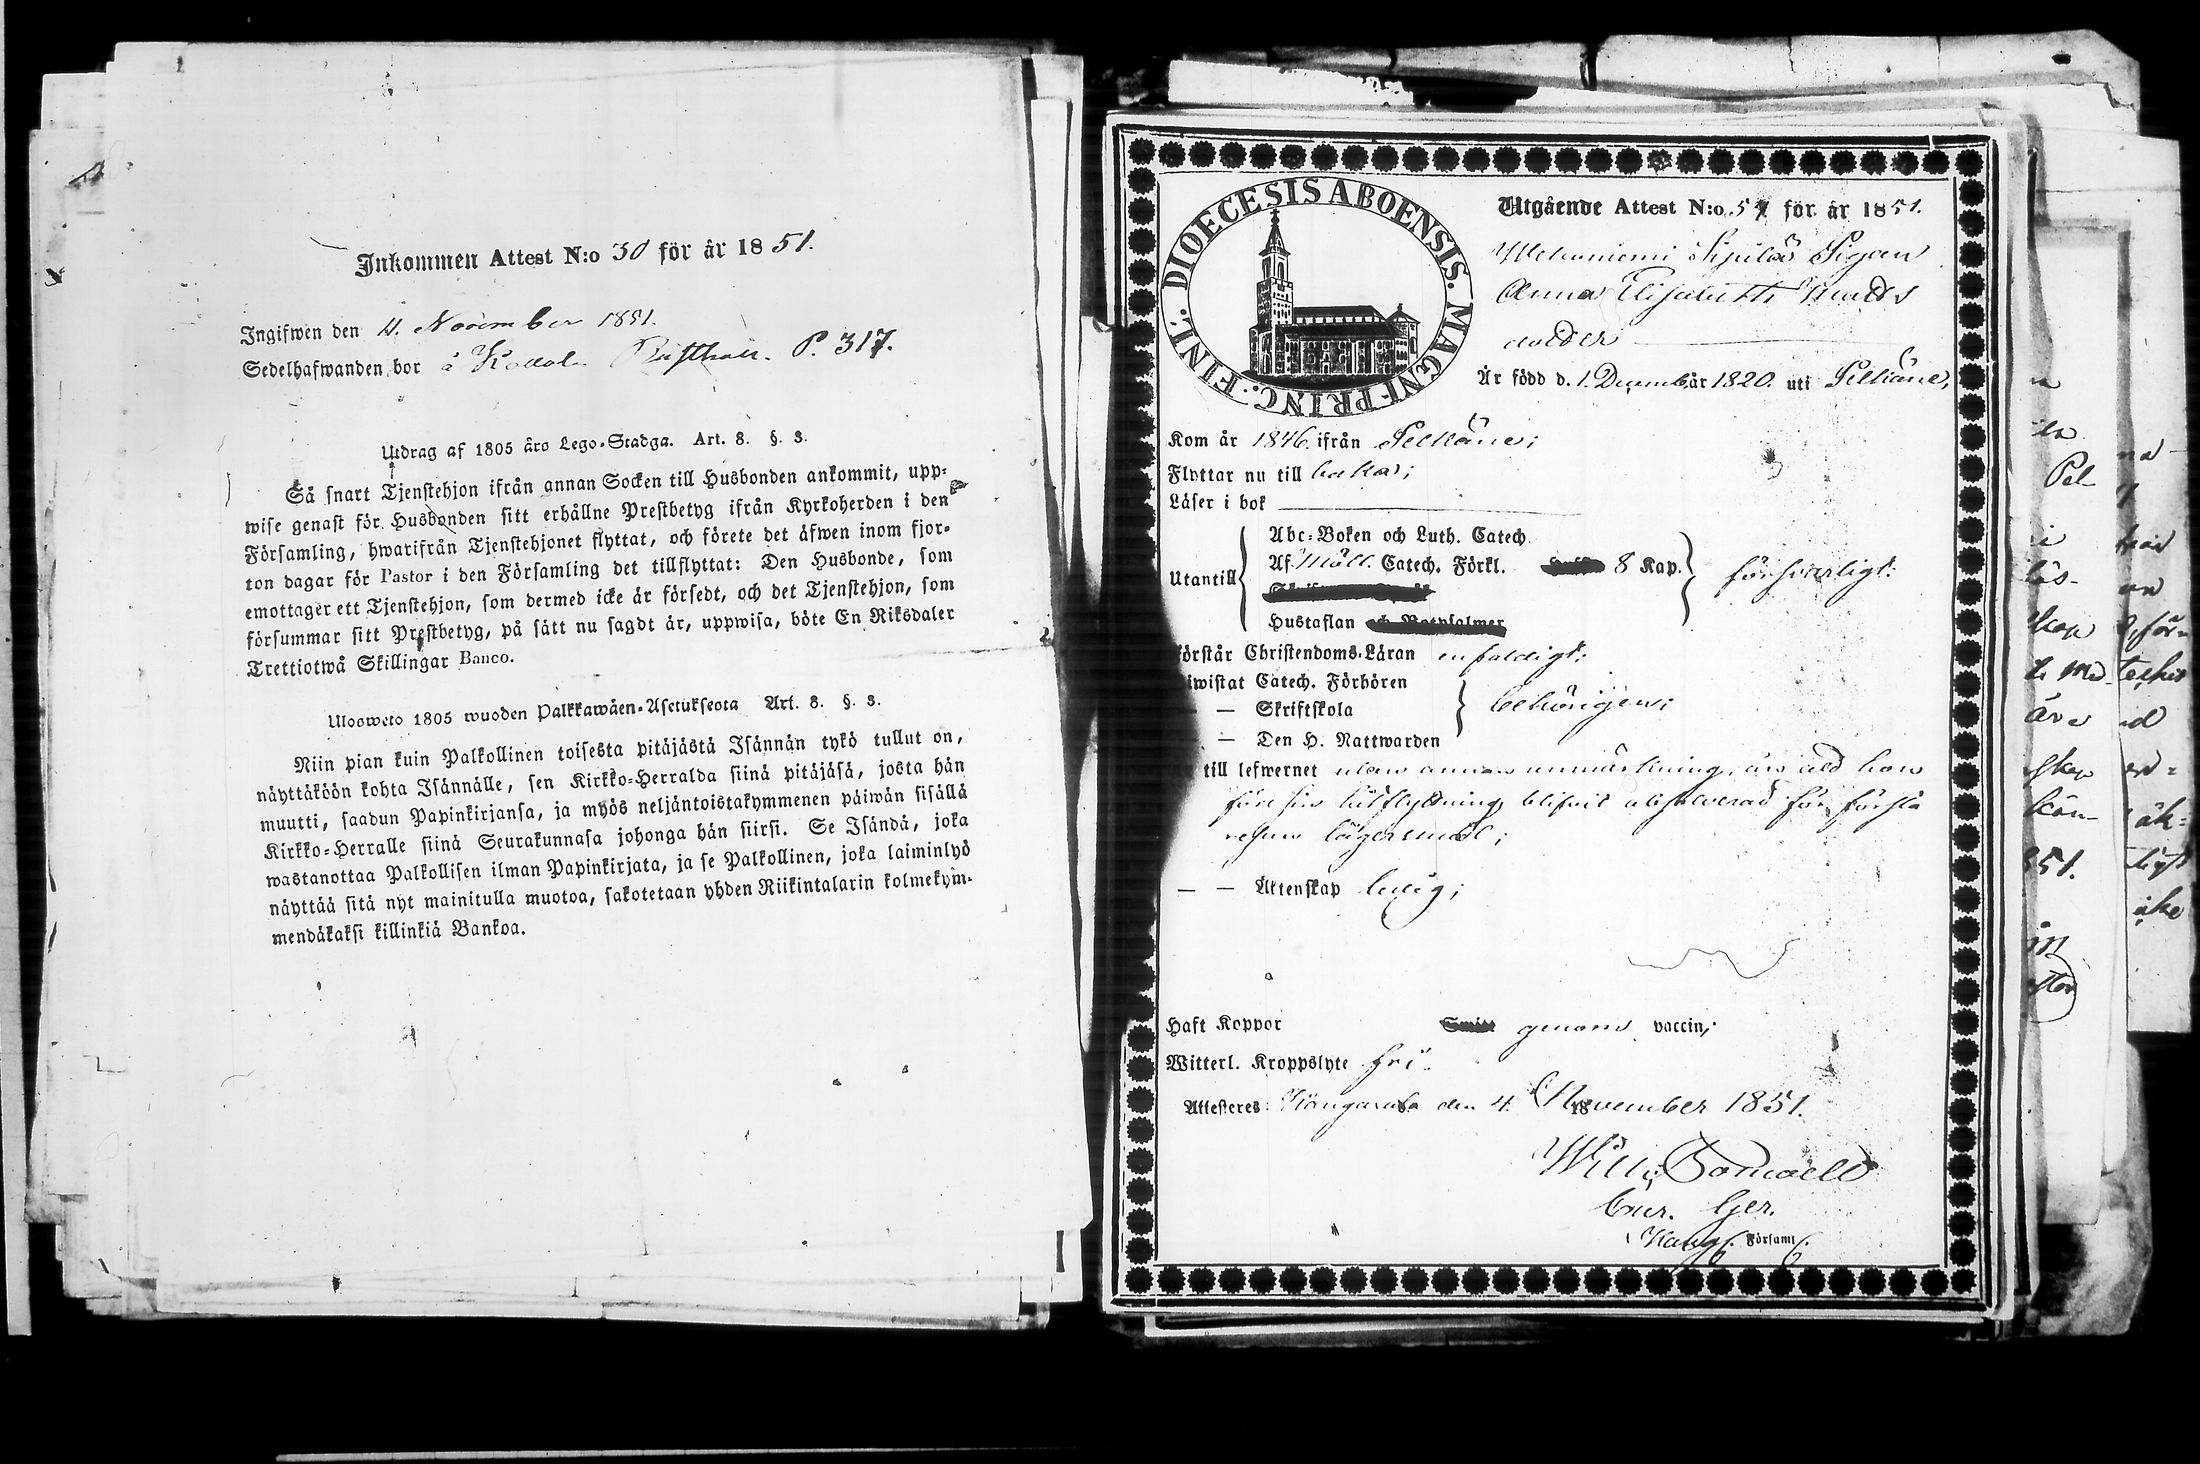 Inkommen Attest N:o 30 för år 1851.
Ingifwen den 4. November 1851.
Sedelhafwanden bor å P. 317.
Utdrag af 1805 års Lego-Stadga. Art. 8. §. 3.
Så snart Tjenstehjon ifrån annan Socken till Husbonden ankommit, upp-
wise genast för Husbonden sitt erhållne Prestbetyg ifrån Kyrkoherden i den
Församling, hwarifrån Tjenstehjonet flyttat, och förete det äfwen inom fjor-
ton dagar för Pastor i den Församling det tillflyttat: Den Husbonde, som
emottager ett Tjenstehjon, som dermed icke är försedt, och det Tjenstehjon, som
försummar sitt Prestbetyg, på sätt nu sagdt är, uppwisa, böte En Riksdaler
Trettiotwå Skillingar Banco.
Ulosweto 1805 wuoden Palkkawäen-Asetuksesta Art. 8. §. 3.
Niin pian kuin Palkollinen toisesta pitäjästä Isännän tykö tullut on,
näyttäköön kohta Isännälle, sen Kirkko-Herralda siinä pitäjäsä, josta hän
muutti, saadun Papinkirjansa, ja myös neljäntoistakymmenen päiwän sisällä
Kirkko-Herralle siinä Seurakunnasa johonga hän siirsi. Se Isändä, joka
wastanottaa Palkollisen ilman Papinkirjata, ja se Palkollinen, joka laiminlyö
näyttää sitä nyt mainitulla muotoa, sakotetaan yhden Riikintalarin kolmekym-
mendäkaksi killinkiä Bankoa.
DIOECESIS ABOENSIS. MAGNI PRINC: FINL:
Utgående Attest N:o 57 för år 1851.
Wehoniemi Pigan
Anna Elisabeth Mats
dotter
Är född d. 1. Decemb. år 1820. uti Pelkäne,
Kom år 1846. ifrån Pelkäne;
Flyttar nu till
Läser i bok
Utantill
Abc-Boken och Luth. Catech.
Af Möll. Catech. Förkl. 8 Kap.
försvarligt:
Hustaflan och Botpsalmer
Förstår Christendoms-Läran enfaldigt;
Biwistat Catech. Förhören
— — Skriftskola
behörigen;
— Den H. Nattwarden
till lefwernet utan annan anmärkning, än att hon
före sin hitflyttning blifvit absolverad för första
resan lägersmål;
— — Äktenskap ledig;
Haft Koppor genom vaccin;
Witterl. Kroppslyte fri.
Attesteres: Kangasala den 4. November 1851.
Cur. Ger.
Kang. Församl.